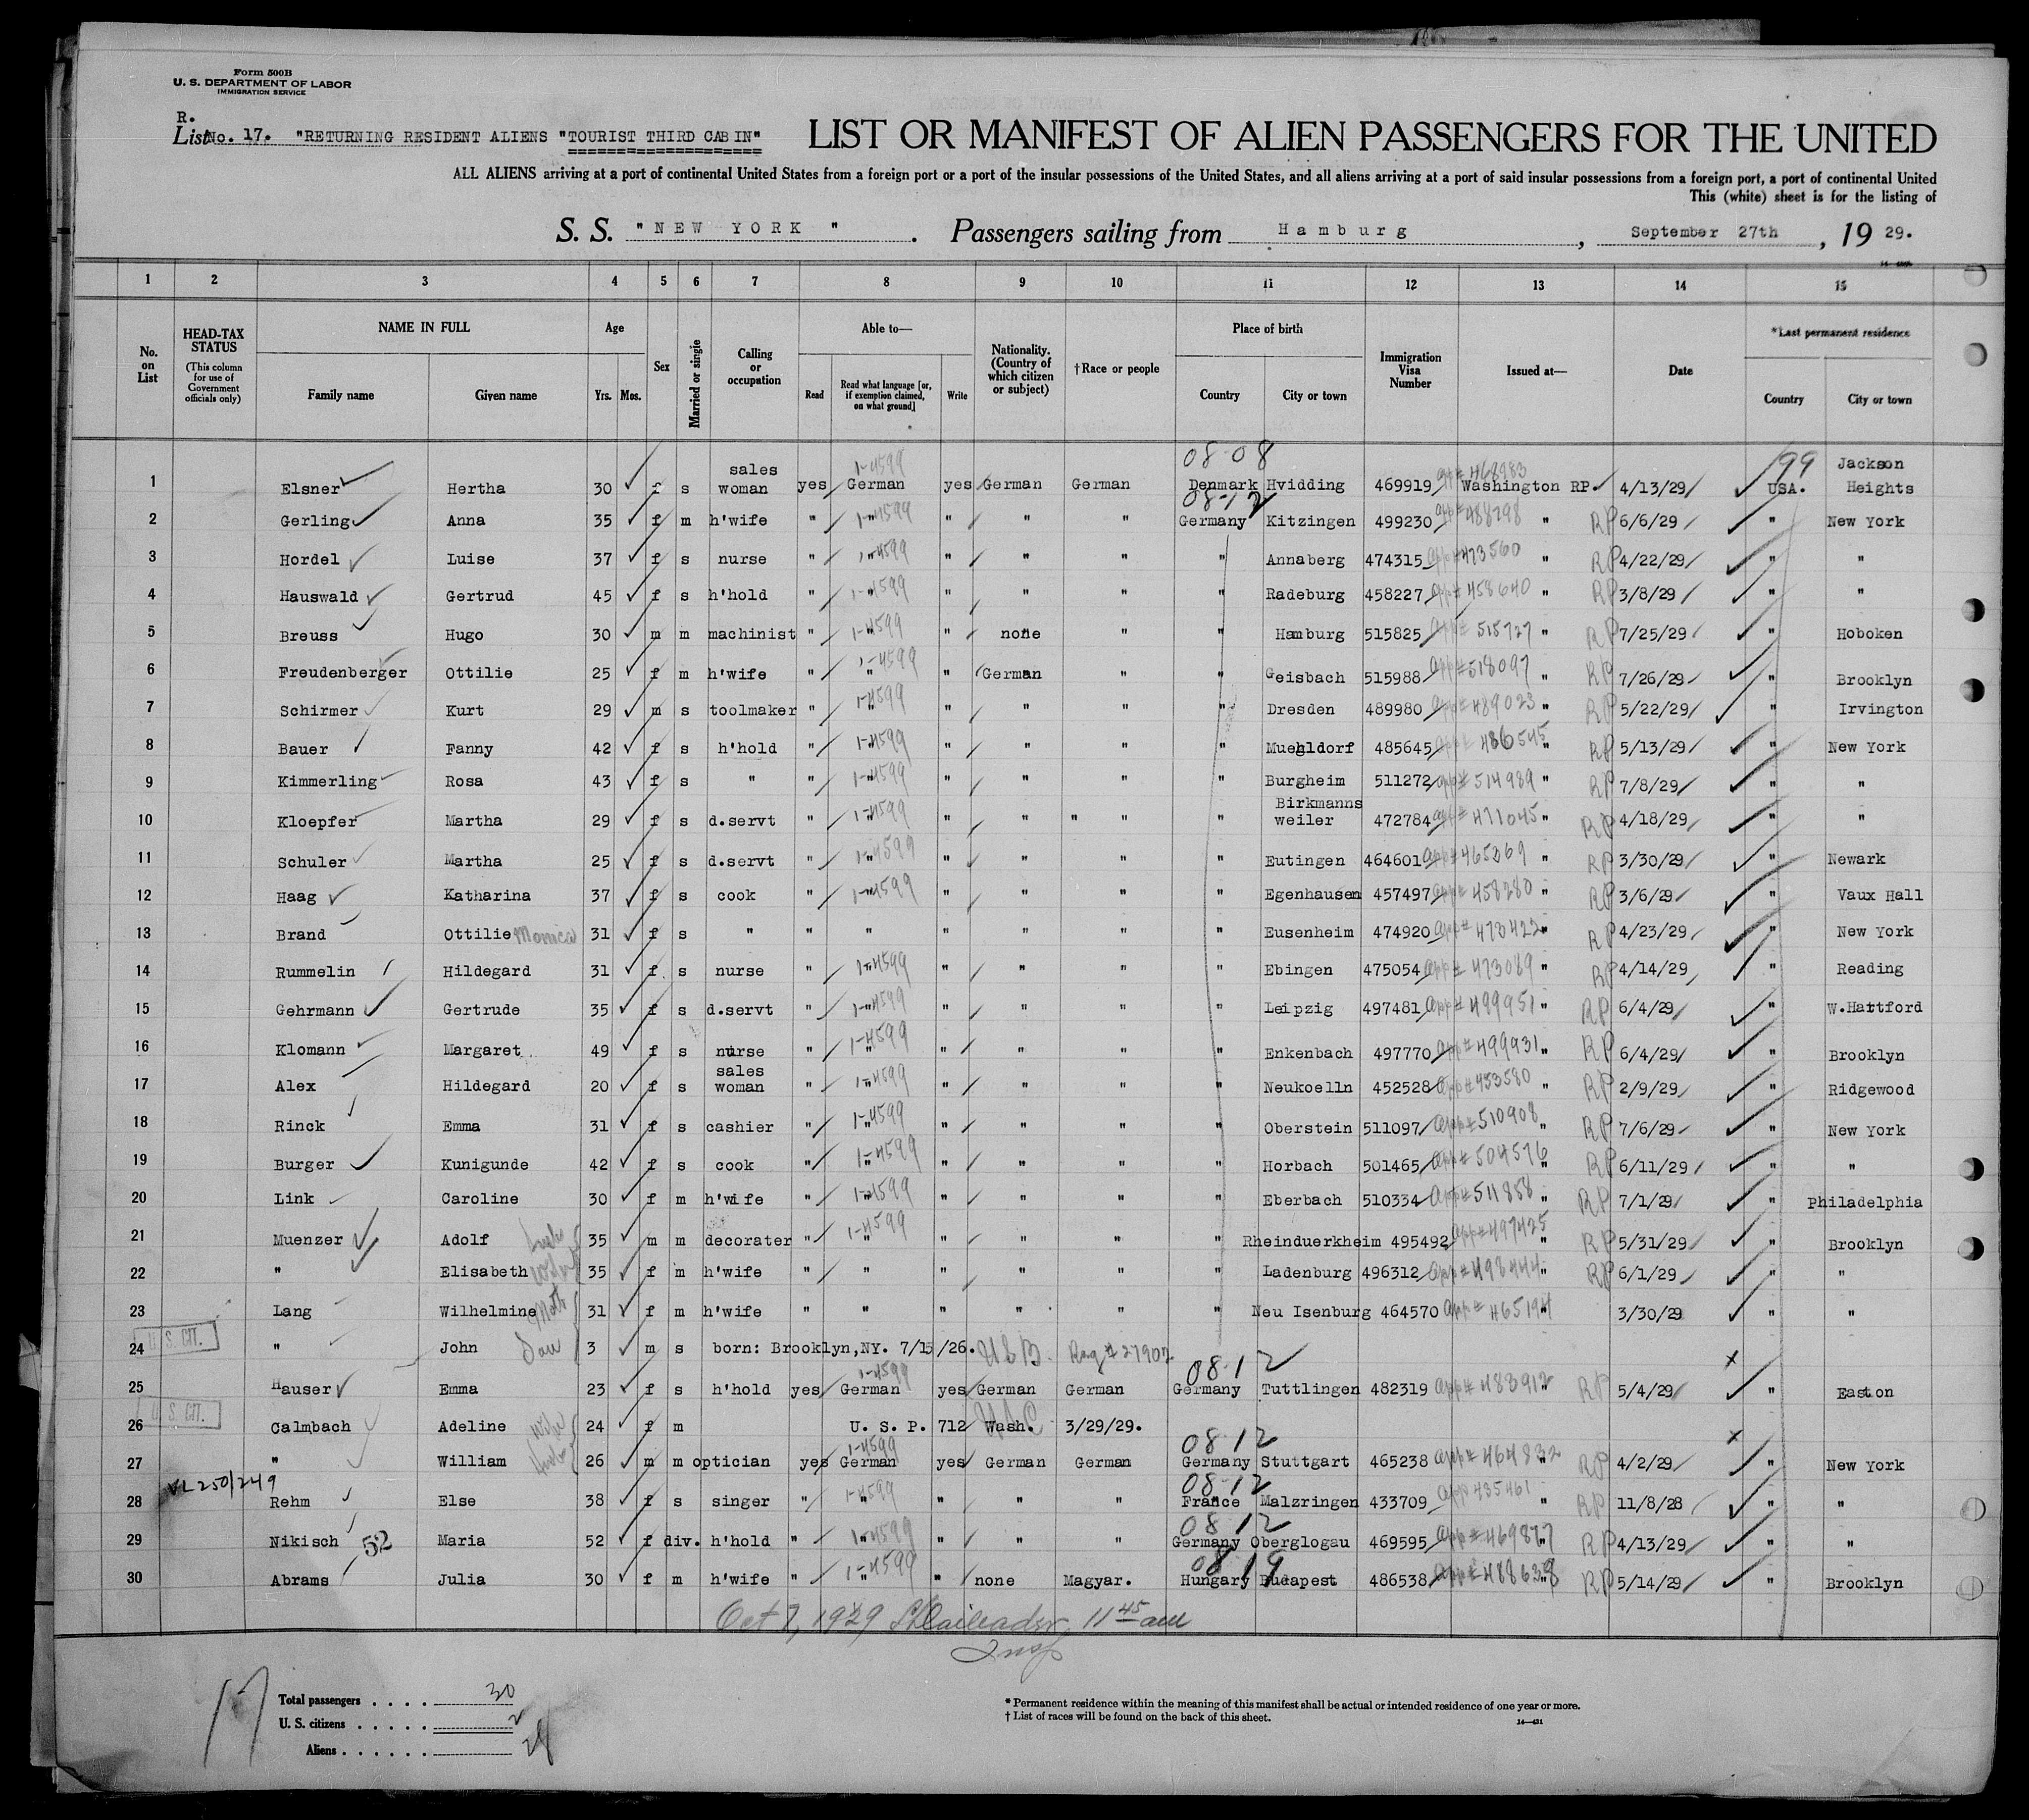 Form 500B
U. S. DEPARTMENT OF LABOR
IMMIGRATION SERVICE
R.
List No. 17. "RETURNING RESIDENT ALIENS "TOURIST THIRD CABIN" LIST OR MANIFEST OF ALIEN PASSENGERS FOR THE UNITED
ALL ALIENS arriving at a port of continental United States from a foreign port or a port of the insular possessions of the United States, and all aliens arriving at a port of said insular possessions from a foreign port, a port of continental United
This (white) sheet is for the listing of
S. S. "NEW YORK". Passengers sailing from Hamburg, September 27th, 19 29.
1 2 3 4 5 6 7 8 9 10 11 12 13 14 15
No. on List HEAD-TAX STATUS (This column for use of Government officials only) NAME IN FULL Family name Given name Age Yrs. Mos. Sex Married or single Calling or occupation Able to— Read Read what language [or, if exemption claimed, on what ground] Write Nationality. (Country of which citizen or subject) † Race or people Place of birth Country City or town Immigration Visa Number Issued at— Date *Last permanent residence Country City or town
08-08 199
1 Elsner Hertha 30 f s sales woman yes 1-4599 German yes German German Denmark Hvidding 469919 app# 468983 Washington RP. 4/13/29 USA. Jackson Heights
08-12
2 Gerling Anna 35 f m h'wife " 1-4599 " " " " Germany Kitzingen 499230 app# 488298 " RP 6/6/29 " New York
3 Hordel Luise 37 f s nurse " 1-4599 " " " " " Annaberg 474315 app# 473560 " RP 4/22/29 " "
4 Hauswald Gertrud 45 f s h'hold " 1-4599 " " " " " Radeburg 458227 app# 458640 " RP 3/8/29 " "
5 Breuss Hugo 30 m m machinist " 1-4599 " " none " " Hamburg 515825 app# 515727 " RP 7/25/29 " Hoboken
6 Freudenberger Ottilie 25 f m h'wife " 1-4599 " " German " " Geisbach 515988 app# 518097 " RP 7/26/29 " Brooklyn
7 Schirmer Kurt 29 m s toolmaker " 1-4599 " " " " " Dresden 489980 app# 489023 " RP 5/22/29 " Irvington
8 Bauer Fanny 42 f s h'hold " 1-4599 " " " " " Muehldorf 485645 app# 486545 " RP 5/13/29 " New York
9 Kimmerling Rosa 43 f s " " 1-4599 " " " " " Burgheim 511272 app# 514989 " RP 7/8/29 " "
10 Kloepfer Martha 29 f s d.servt " 1-4599 " " " " " " Birkmanns weiler 472784 app# 471045 " RP 4/18/29 " "
11 Schuler Martha 25 f s d.servt " 1-4599 " " " " " Eutingen 464601 app# 465269 " RP 3/30/29 " Newark
12 Haag Katharina 37 f s cook " 1-4599 " " " " " Egenhausen 457497 app# 458280 " RP 3/6/29 " Vaux Hall
13 Brand Ottilie Monica 31 f s " " " " " " " Eusenheim 474920 app# 473422 " RP 4/23/29 " New York
14 Rummelin Hildegard 31 f s nurse " 1-4599 " " " " " Ebingen 475054 app# 473089 " RP 4/14/29 " Reading
15 Gehrmann Gertrude 35 f s d.servt " 1-4599 " " " " " Leipzig 497481 app# 499951 " RP 6/4/29 " W.Hartford
16 Klomann Margaret 49 f s nurse " 1-4599 " " " " " Enkenbach 497770 app# 499931 " RP 6/4/29 " Brooklyn
17 Alex Hildegard 20 f s sales woman " 1-4599 " " " " " Neukoelln 452528 app# 453580 " RP 2/9/29 " Ridgewood
18 Rinck Emma 31 f s cashier " 1-4599 " " " " " Oberstein 511097 app# 510908 " RP 7/6/29 " New York
19 Burger Kunigunde 42 f s cook " 1-4599 " " " " " Horbach 501465 app# 504576 " RP 6/11/29 " "
20 Link Caroline 30 f m h'wife " 1-4599 " " " " " Eberbach 510334 app# 511858 " RP 7/1/29 " Philadelphia
21 Muenzer Adolf 35 m m decorater " 1-4599 " " " " " Rheinduerkheim 495492 app# 497425 " RP 5/31/29 " Brooklyn
22 " Elisabeth Wife 35 f m h'wife " " " " " " Ladenburg 496312 app# 498444 " RP 6/1/29 " "
23 Lang Wilhelmine Moth 31 f m h'wife " " " " " " Neu Isenburg 464570 app# 465194 " 3/30/29 " "
U.S. CIT.
24 " John 3 m s born: Brooklyn,NY. 7/15/26. USB. Reg # 27902
08-12
25 Hauser Emma 23 f s h'hold yes 1-4599 German yes German German Germany Tuttlingen 482319 app# 483912 " RP 5/4/29 x " Easton
U.S. CIT.
26 Calmbach Adeline Wife 24 f m U. S. P. 712 Wash. USC 3/29/29.
08-12
27 " William 26 m m optician yes 1-4599 German yes German German Germany Stuttgart 465238 app# 464832 " RP 4/2/29 x " New York
VL 250/249 08-12
28 Rehm Else 38 f s singer " 1-4599 " " " " France Malzringen 433709 app 435461 " RP 11/8/28 " "
08 12
29 Nikisch 52 Maria 52 f div. h'hold " 1-4599 " " " " Germany Oberglogau 469595 app# 469877 " RP 4/13/29 " "
08 19
30 Abrams Julia 30 f m h'wife " 1-4599 " " none Magyar. Hungary Budapest 486538 app# 488638 " RP 5/14/29 " Brooklyn
Oct 7, 1929 11 45 am
Insp
17
Total passengers . . . . 30
U. S. citizens . . . . . 2
Aliens . . . . . . 28
* Permanent residence within the meaning of this manifest shall be actual or intended residence of one year or more.
† List of races will be found on the back of this sheet.
14—431